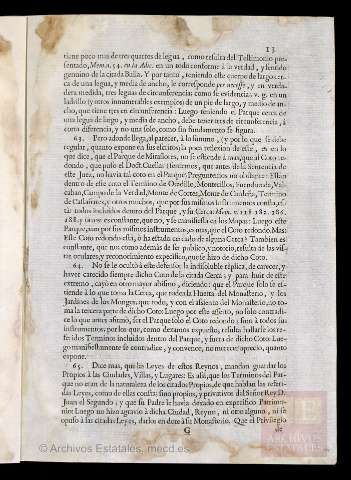 13
tiene poco mas de tres quartos de legua, como resulta del Testimonio pre-
sentado, Mem. n. 54. en la Adic. en un todo conforme à la verdad, y sentido
genuino de la citada Bulla. Y por tanto, teniendo este cuerpo de largo cer-
ca de una legua, y media de ancho, le corresponde per necesse, y en verda-
dera medida, tres leguas de circunferencia: como se evidencia, v. g. en un
ladrillo (y otros innumerables exemplos) de un pie de largo, y medio de an-
cho, que tiene tres en circunferencia: Luego teniendo el Parque cerca de
una legua de largo, y media de ancho, debe tener tres de circunferencia, à
corta diferencia, y no una sola, como sin fundamento se figura.
63. Pero adonde llega, al parecer, à lo sumo, (y por lo que se debe
regular, quanto expone en sus escritos) la poca reflexion de este, es en lo
que dice, que el Parque de Miraflores, no se estiende à mas, que al Coto re-
dondo, que puso el Doct. Cuellar (siendo, que antes de la Sentencia de
este Juez, no havia tal coto en el Parque) Preguntemos no obstante: Estan
dentro de este coto el Termino de Ojedillo, Montecillos, Fuendunda, Val-
cabao, Campo de la Verdad, Monte de Cortes, Monte de Cardeña, Termino
de Castañares, y otros muchos, que por sus mismos instrumentos consta, es-
tàr todos incluidos dentro del Parque, y su Cerca? Mem. n. 118. 182. 286.
188. y su nota es constante, que no, y se manifiesta en los Mapas: Luego este
Parque, aun por sus mismos instrumentos, es mas, que el Coto redondo. Mas:
Este Coto redondo està, ò ha estado cercado de alguna Cerca? Tambien es
constante, que no: como además de ser publico, y notorio, resulta de las vis-
tas oculares, y reconocimiento especifico, que se hizo de dicho Coto.
64. No se le ocultò à este defensor la indisoluble rèplica, de carecer, y
haver carecido siempre dicho Coto de la citada Cerca; y para huir de este
extremo, cayò en otro mayor absurdo, diciendo: que el Parque solo se es-
tiende à lo que toma la Cerca, que rodea la Huerta del Monasterio, y los
Jardines de los Monges: que todo, y con el assiento del Monasterio, no to-
ma la tercera parte de dicho Coto: Luego por este assiento, no solo contradi-
ce lo que antes assienta, ser el Parque todo el Coto redondo; sino à todos sus
instrumentos, por los que, como dexamos expuesto, resulta hallarse los re-
feridos Terminos incluidos dentro del Parque, y fuera de dicho Coto: Lue-
go manifiestamente se contradice, y convence, no merecer aprecio, quanto
expone.
65. Dice mas, que las Leyes de estos Reynos, mandan guardar los
Propios à las Ciudades, Villas, y Lugares: Es assi; que los Terminos del Par-
que no eran de la naturaleza de los citados Propios, de que hablan las referi-
das Leyes, como de ellas consta: sino propios, y privativos del Señor Rey D.
Juan el Segundo; y que su Padre le havia dexado en expecifico Patrimo-
nio: Luego no hizo agravio à dicha Ciudad, Reyno, ni otro alguno, ni se
opuso à las citadas Leyes, darlos en dote à su Monasterio. Que el Privilegio
G
© Archivos Estatales, mecd.es
ARCHIVOS ESTATALES